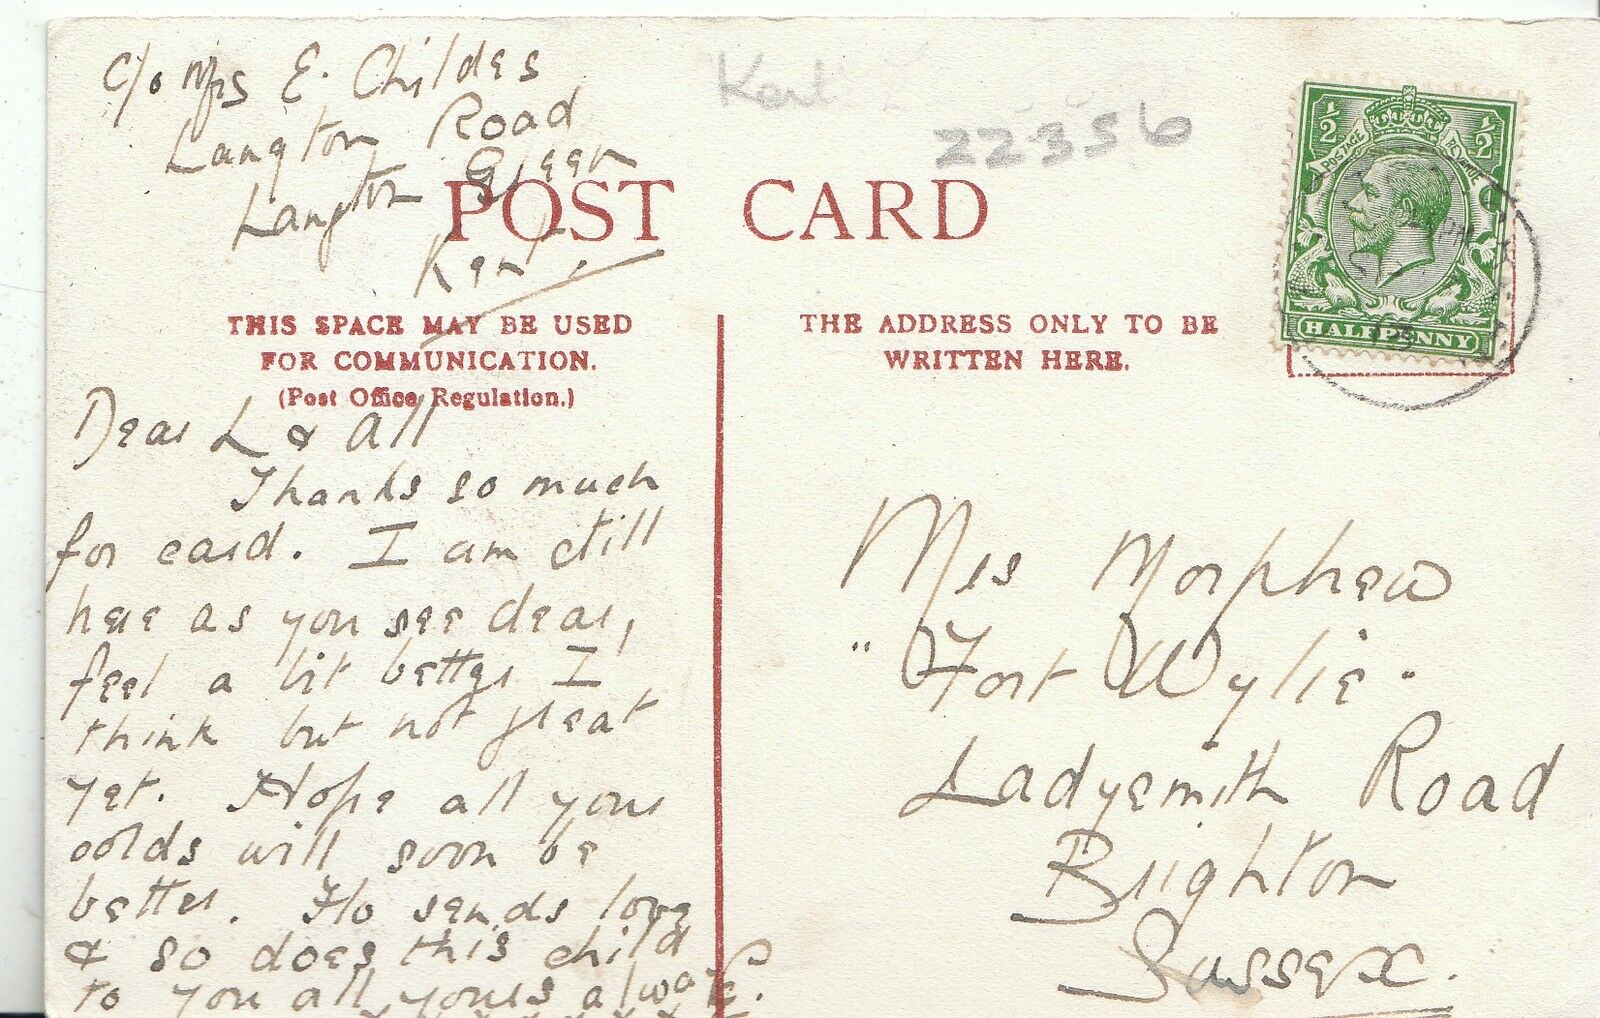 c/o Mrs E. Childes
Langton Road
Langton Green
Kent.
Kent
22356
POST CARD
THIS SPACE MAY BE USED
FOR COMMUNICATION.
(Post Office Regulation.)
THE ADDRESS ONLY TO BE
WRITTEN HERE.
½ ½
POSTAGE REVENUE
HALFPENNY
Dear L & All
Thanks so much
for card. I am still
here as you see dear,
feel a bit better I
think but not great
yet. Hope all your
colds will soon be
better. Flo sends love
& so does this child
to you all, yours always.
x x x x x x x x
Mrs Morphew
"Fort Wylie"
Ladysmith Road
Brighton
Sussex.